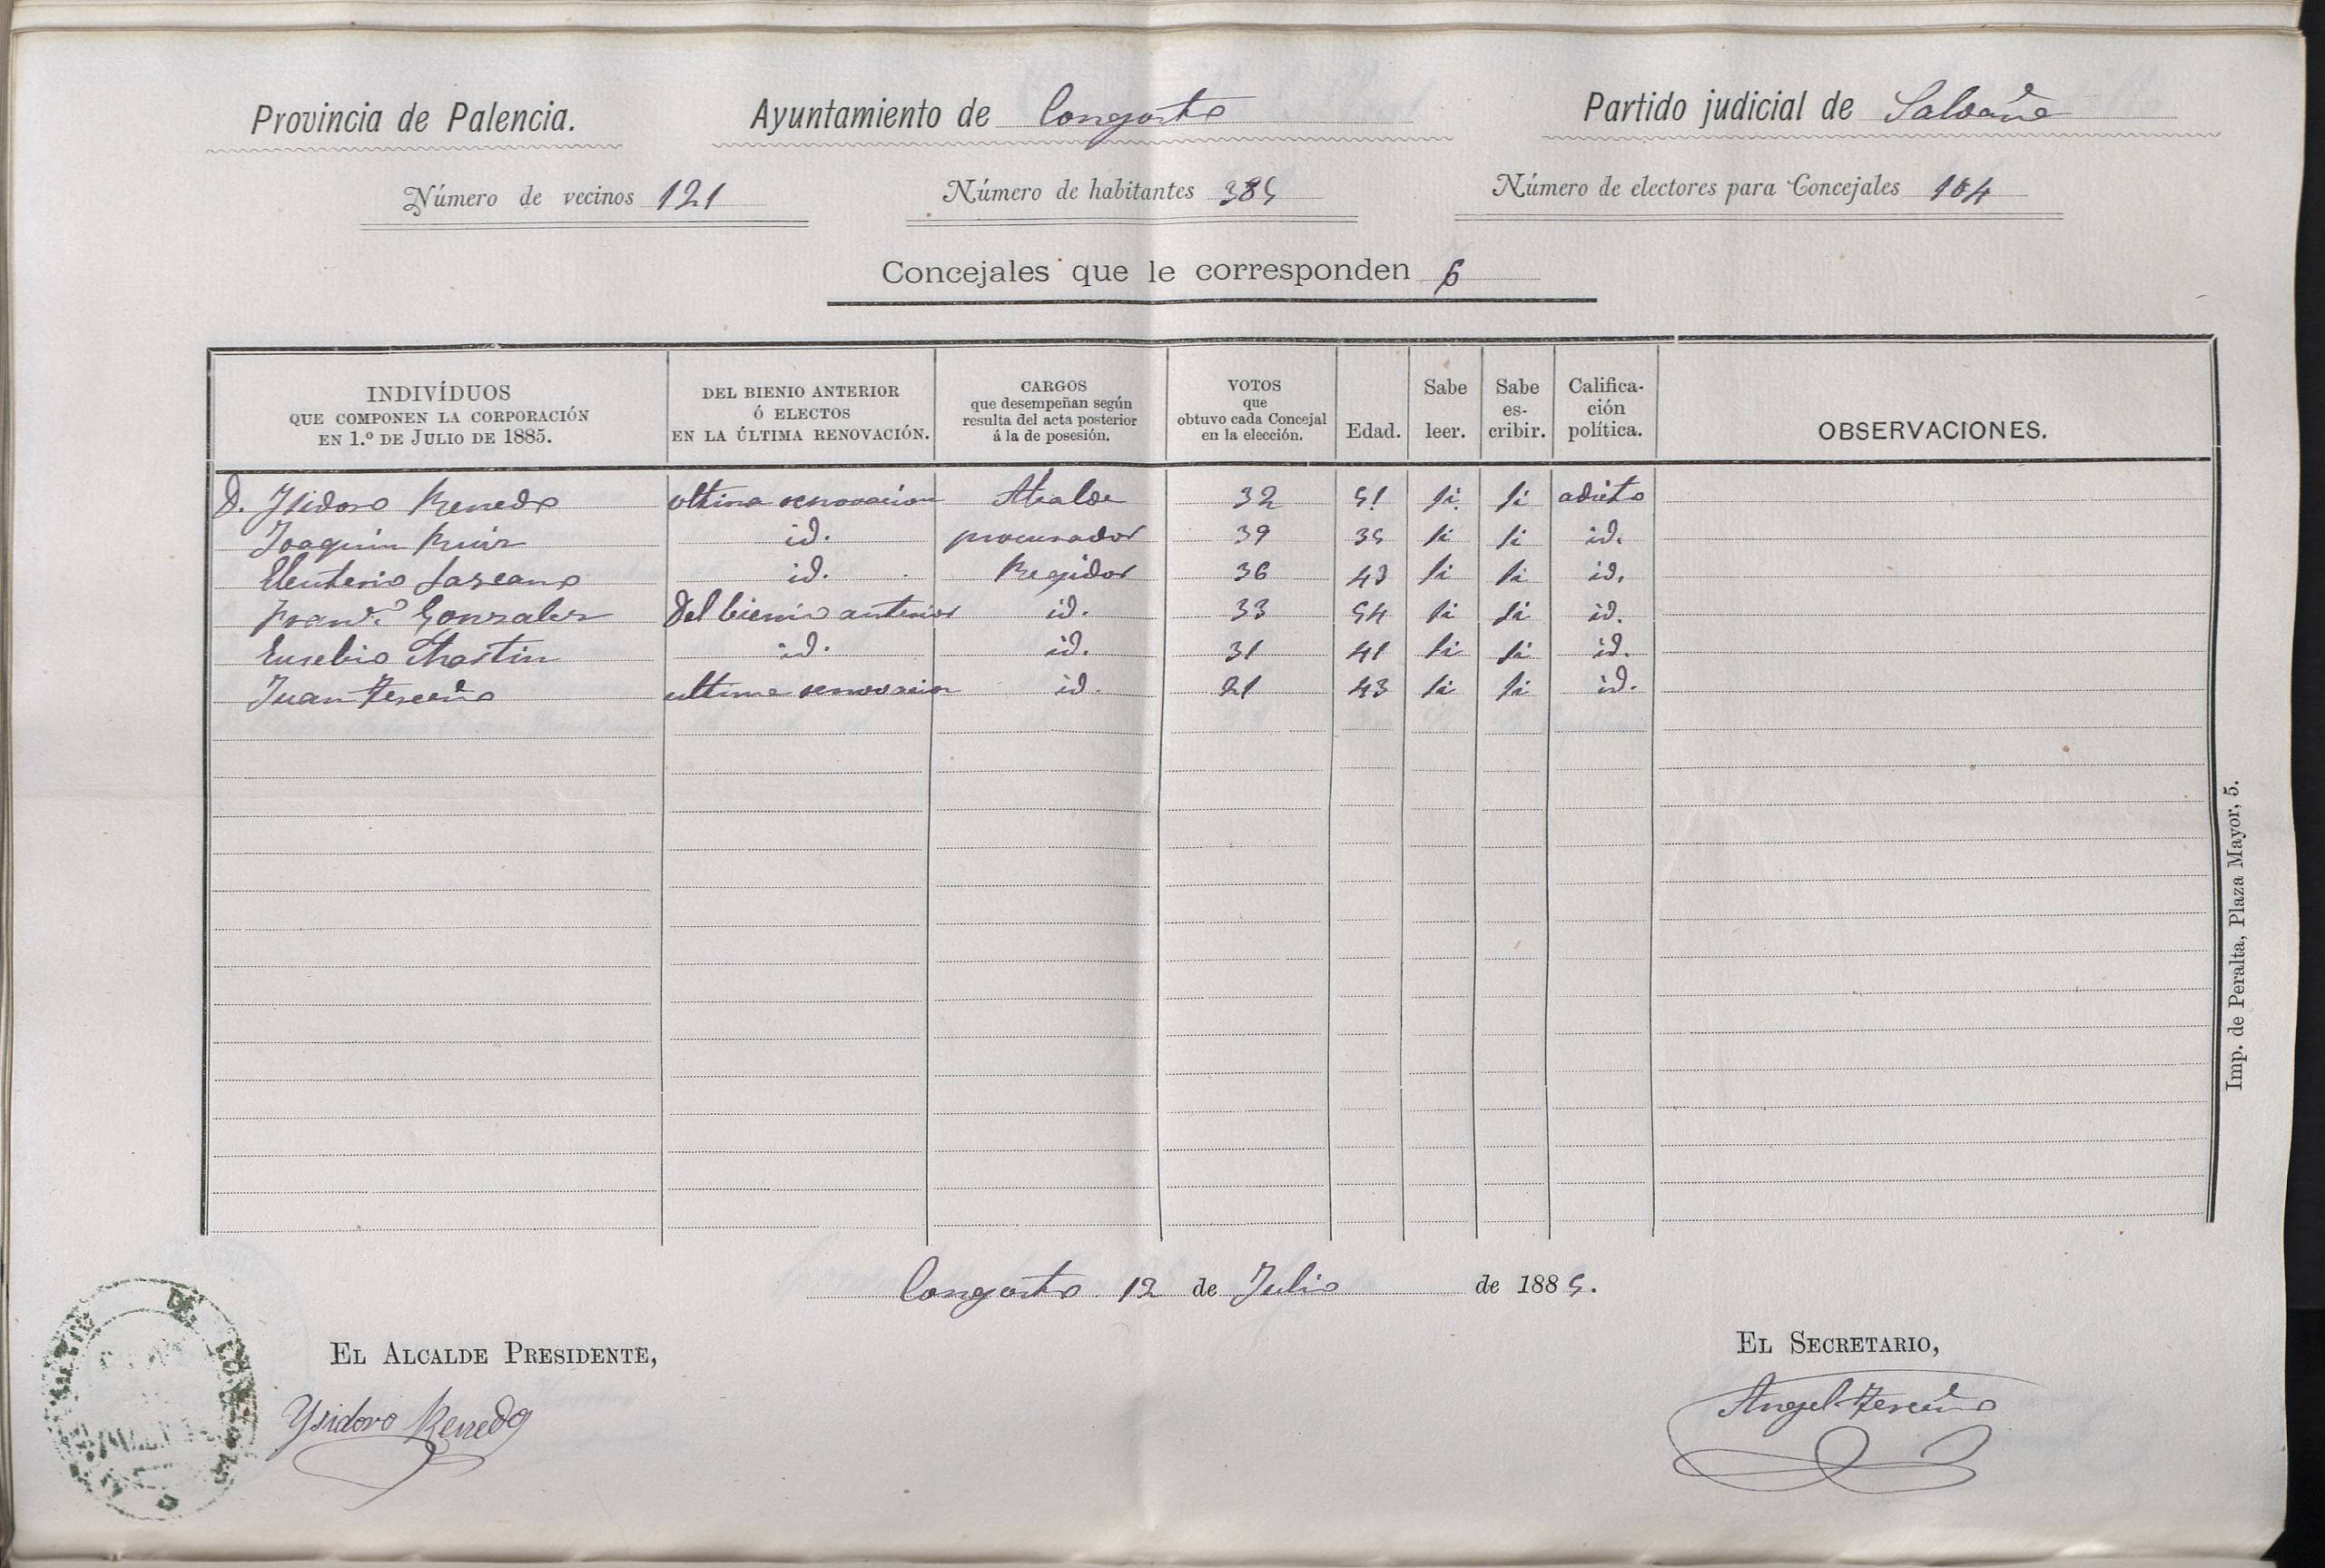 Provincia de Palencia. Ayuntamiento de Congosto Partido judicial de Saldaña
Número de vecinos 121 Número de habitantes 385 Número de electores para Concejales 104
Concejales que le corresponden 6
INDIVÍDUOS QUE COMPONEN LA CORPORACIÓN EN 1.º DE JULIO DE 1885. DEL BIENIO ANTERIOR Ó ELECTOS EN LA ÚLTIMA RENOVACIÓN. CARGOS que desempeñan según resulta del acta posterior á la de posesión. VOTOS que obtuvo cada Concejal en la elección. Edad. Sabe leer. Sabe es-cribir. Califica-ción política. OBSERVACIONES.
D. Isidoro Renedo ultima renovacion Alcalde 32 51 si si adicto
Joaquin Ruiz id. procurador 39 35 si si id.
Eleuterio Lascano id. Regidor 36 43 si si id.
Franc.º Gonzalez Del bienio anterior id. 33 54 si si id.
Eusebio Martin id. id. 31 41 si si id.
Juan Terceño ultima renovacion id. 21 43 si si id.
Congosto 12 de Julio de 1885.
EL ALCALDE PRESIDENTE, EL SECRETARIO,
Ysidoro Renedo Angel Terceño
Imp. de Peralta, Plaza Mayor, 5.